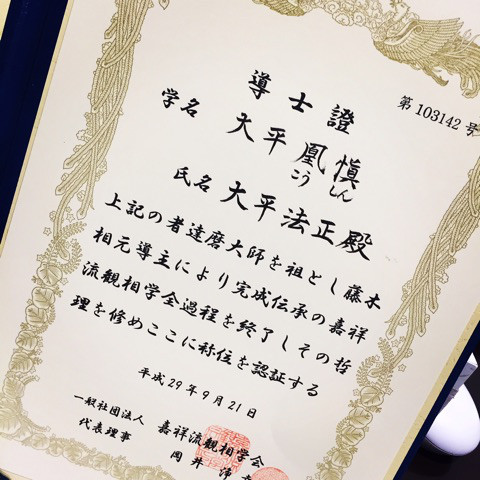 第103142号
導士證
学名 大平凰慎
こう しん
氏名 大平法正殿
上記の者達磨大師を祖とし藤木
相元導主により完成伝承の嘉祥
流観相学全過程を終了しその哲
理を修めここに称位を認証する
平成29年9月21日
一般社団法人 嘉祥流観相学会
代表理事 岡井